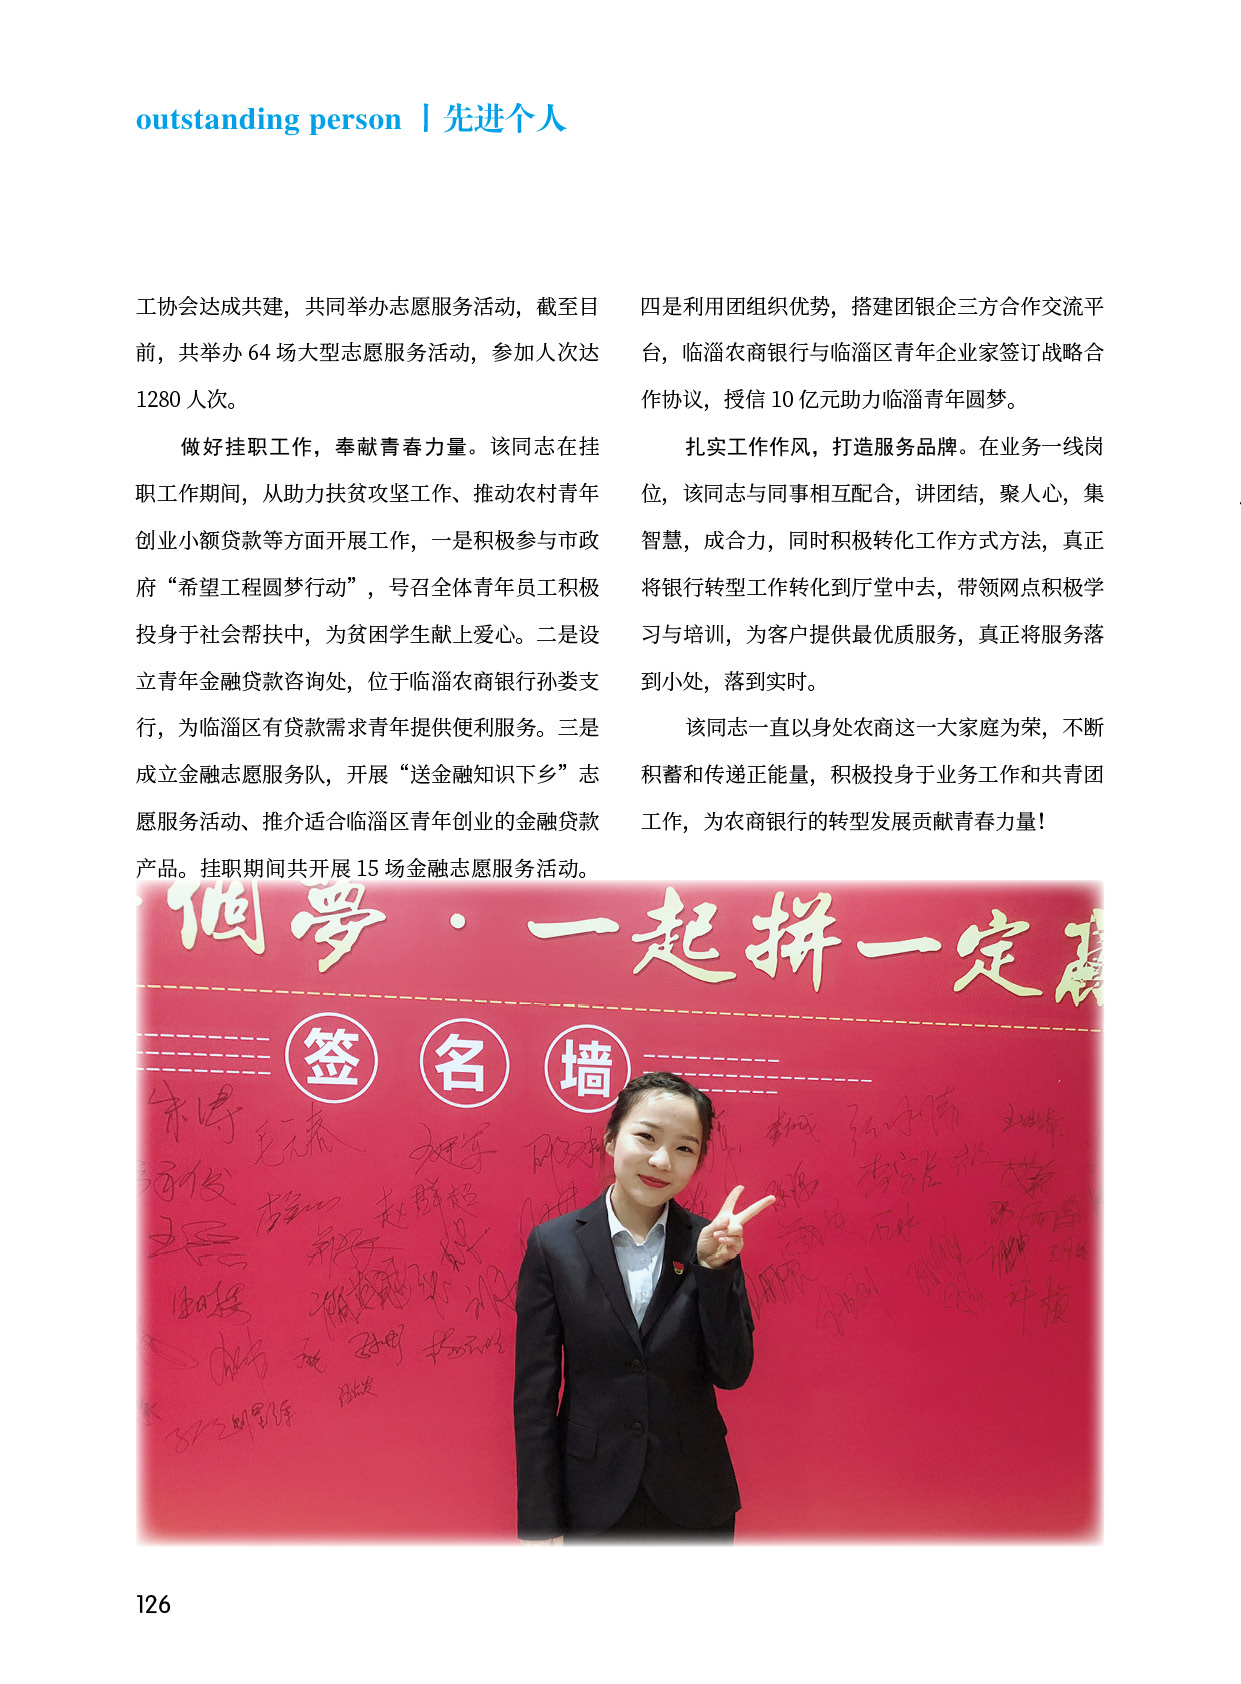 outstanding person 丨先进个人
工协会达成共建，共同举办志愿服务活动，截至目
前，共举办 64 场大型志愿服务活动，参加人次达
1280 人次。
做好挂职工作，奉献青春力量。该同志在挂
职工作期间，从助力扶贫攻坚工作、推动农村青年
创业小额贷款等方面开展工作，一是积极参与市政
府“希望工程圆梦行动”，号召全体青年员工积极
投身于社会帮扶中，为贫困学生献上爱心。二是设
立青年金融贷款咨询处，位于临淄农商银行孙娄支
行，为临淄区有贷款需求青年提供便利服务。三是
成立金融志愿服务队，开展“送金融知识下乡”志
愿服务活动、推介适合临淄区青年创业的金融贷款
产品。挂职期间共开展 15 场金融志愿服务活动。
四是利用团组织优势，搭建团银企三方合作交流平
台，临淄农商银行与临淄区青年企业家签订战略合
作协议，授信 10 亿元助力临淄青年圆梦。
扎实工作作风，打造服务品牌。在业务一线岗
位，该同志与同事相互配合，讲团结，聚人心，集
智慧，成合力，同时积极转化工作方式方法，真正
将银行转型工作转化到厅堂中去，带领网点积极学
习与培训，为客户提供最优质服务，真正将服务落
到小处，落到实时。
该同志一直以身处农商这一大家庭为荣，不断
积蓄和传递正能量，积极投身于业务工作和共青团
工作，为农商银行的转型发展贡献青春力量！
個夢·一起拼一定赢
签名墙
126